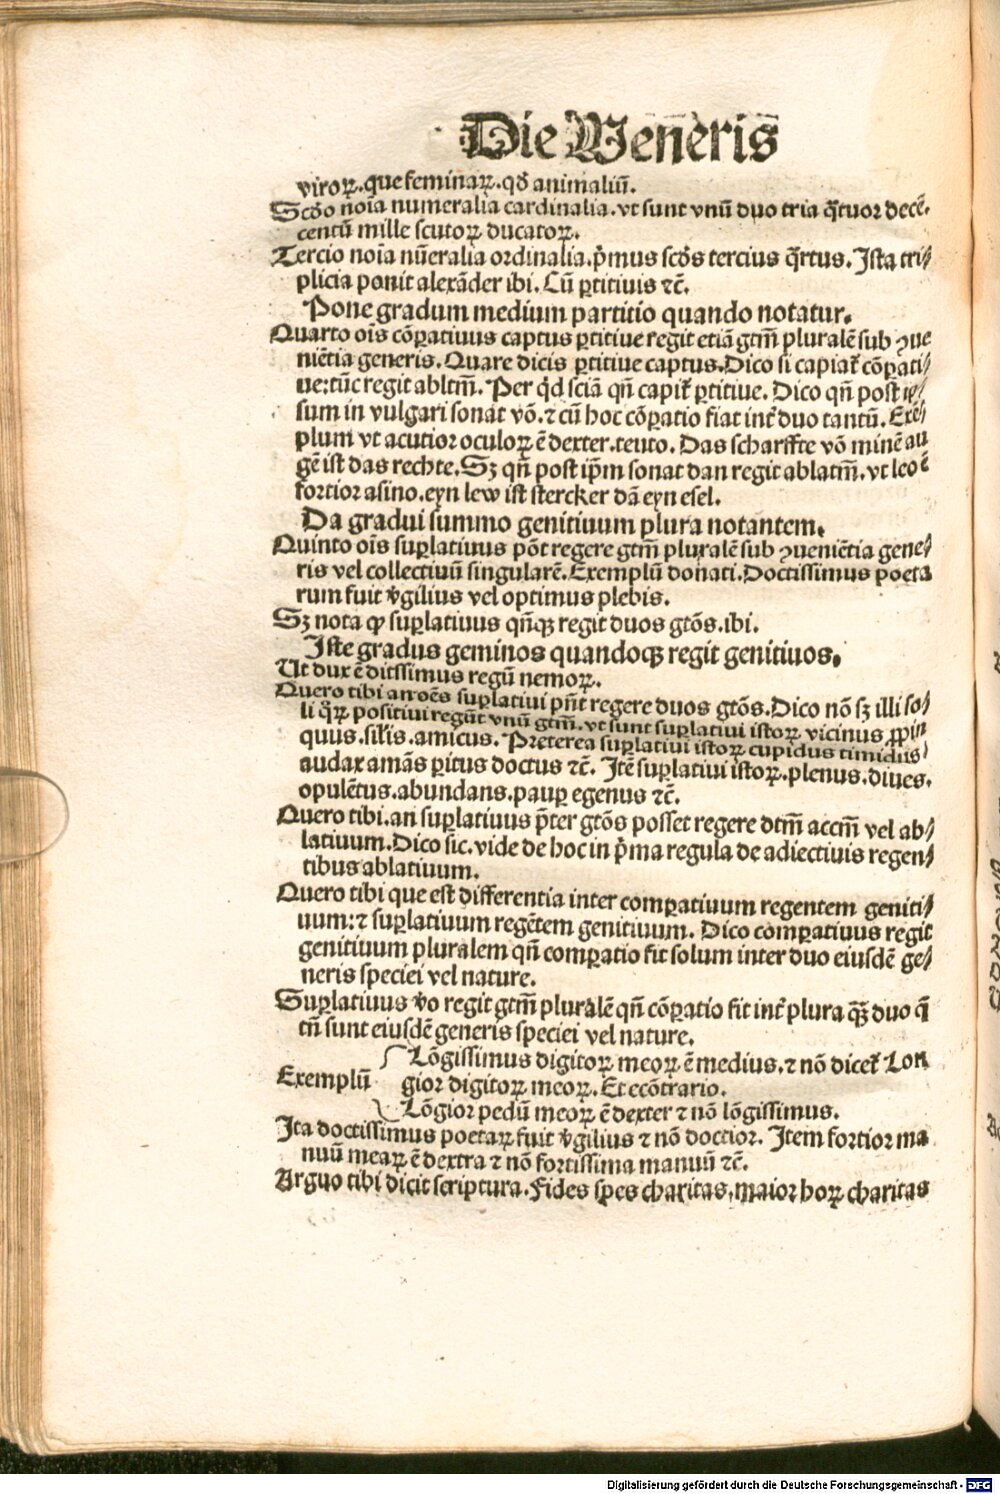 Die Ueneris
viroꝝ. que feminaꝝ. qđ animaliū.
Scđo noīa numeralia cardinalia. vt sunt vnū duo tria q̄tuor decē.
centū mille scutoꝝ ducatoꝝ.
Tercio noīa nūeralia ordinalia. p̄mus scđs tercius q̄rtus. Ista tri⸗
plicia ponit alexāder ibi. Cū ꝑtitiuis ⁊c̄.
Pone gradum medium partitio quando notatur.
Quarto oīs cōꝑatiuus captus ꝑtitiue regit etiā gtm̄ pluralē sub ꝯue
niētia generis. Quare dicis ꝑtitiue captus. Dico si capiat̄ cōꝑati⸗
ue: tūc regit abltm̄. Per q̄d sciā qn̄ capit̄ ꝑtitiue. Dico qn̄ post ip⸗
sum in vulgari sonat vō. ⁊ cū hoc cōꝑatio fiat int̄ duo tantū. Exē⸗
plum vt acutior oculoꝝ ē dexter. teuto. Das scharffte vō minē au
gē ist das rechte. Sꝫ qn̄ post ip̄m sonat dan regit ablatm̄. vt leo ē
fortior asino. eyn lew ist stercker dā eyn esel.
Da gradui summo genitiuum plura notantem.
Quinto oīs suꝑlatiuus pōt regere gtm̄ pluralē sub ꝯueniētia gene⸗
ris vel collectiuū singularē. Exemplū donati. Doctissimus poeta
rum fuit v̄gilius vel optimus plebis.
Sꝫ nota ꝙ suꝑlatiuus qn̄qꝫ regit duos gtōs. ibi.
Iste gradus geminos quandoqꝫ regit genitiuos.
Ut dux ē ditssimus regū nemoꝝ.
Quero tibi an oēs suꝑlatiui pn̄t regere duos gtōs. Dico nō sꝫ illi so⸗
li q̄ꝝ positiui regūt vnū gtm̄. vt sunt suꝑlatiui istoꝝ vicinus ꝓpin
quus. sil̄is. amicus. Preterea suꝑlatiui istoꝝ cupidus timidus
audax amās ꝑitus doctus ⁊c̄. Itē suꝑlatiui istoꝝ. plenus. diues.
opulētus. abundans. pauꝑ egenus ⁊c̄.
Quero tibi. an suꝑlatiuus p̄ter gtōs posset regere dtm̄ accm̄ vel ab⸗
latiuum. Dico sic. vide de hoc in p̄ma regula de adiectiuis regen⸗
tibus ablatiuum.
Quero tibi que est differentia inter comꝑatiuum regentem geniti⸗
uum: ⁊ suꝑlatiuum regētem genitiuum. Dico comꝑatiuus regit
genitiuum pluralem qn̄ comꝑatio fit solum inter duo eiusdē ge⸗
neris speciei vel nature.
Suꝑlatiuus v̄o regit gtm̄ pluralē qn̄ cōꝑatio fit int̄ plura qꝫ̄ duo q̄
tn̄ sunt eiusdē generis speciei vel nature.
Lōgissimus digitoꝝ meoꝝ ē medius. ⁊ nō dicet̄ Lon
Exemplū gior digitoꝝ meoꝝ. Et ecōtrario.
Lōgior pedū meoꝝ ē dexter ⁊ nō lōgissimus.
Ita doctissimus poetaꝝ fuit v̄gilius ⁊ nō doctior. Item fortior ma
nuū meaꝝ ē dextra ⁊ nō fortissima manuū ⁊c̄.
Arguo tibi dicit scriptura. Fides spes charitas, maior hoꝝ charitas
Digitalisierung gefördert durch die Deutsche Forschungsgemeinschaft - DFG